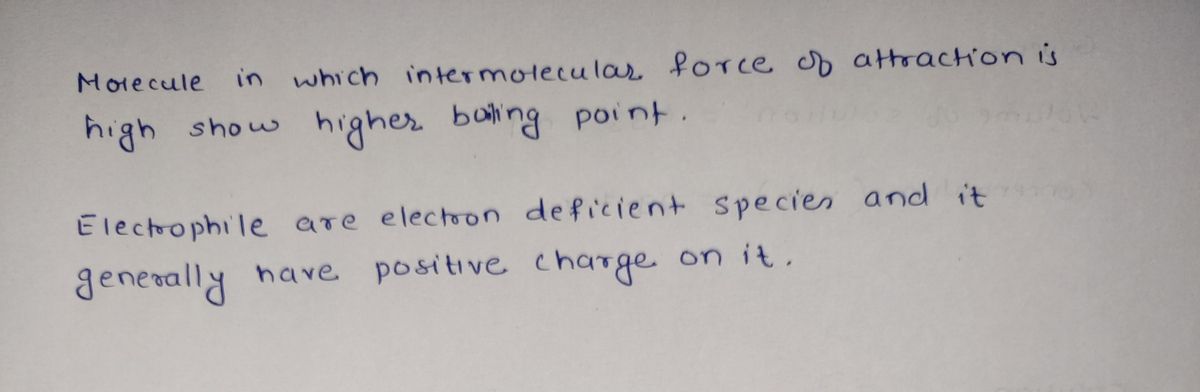 Molecule in which intermolecular force of attraction is
high show higher boiling point.
Electrophile are electron deficient species and it
generally have positive charge on it.